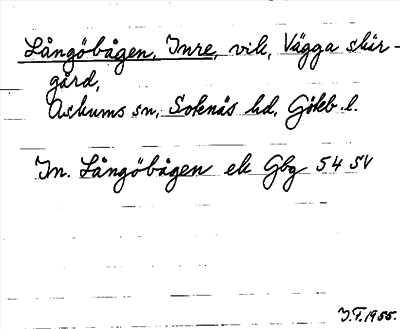 Långöbågen, Inre, vik, Vägga skär-
gård,
Askums sn, Sotenäs hd, Göteb. l.
In. Långöbågen ek Gbg 54 SV
I.F. 1955.